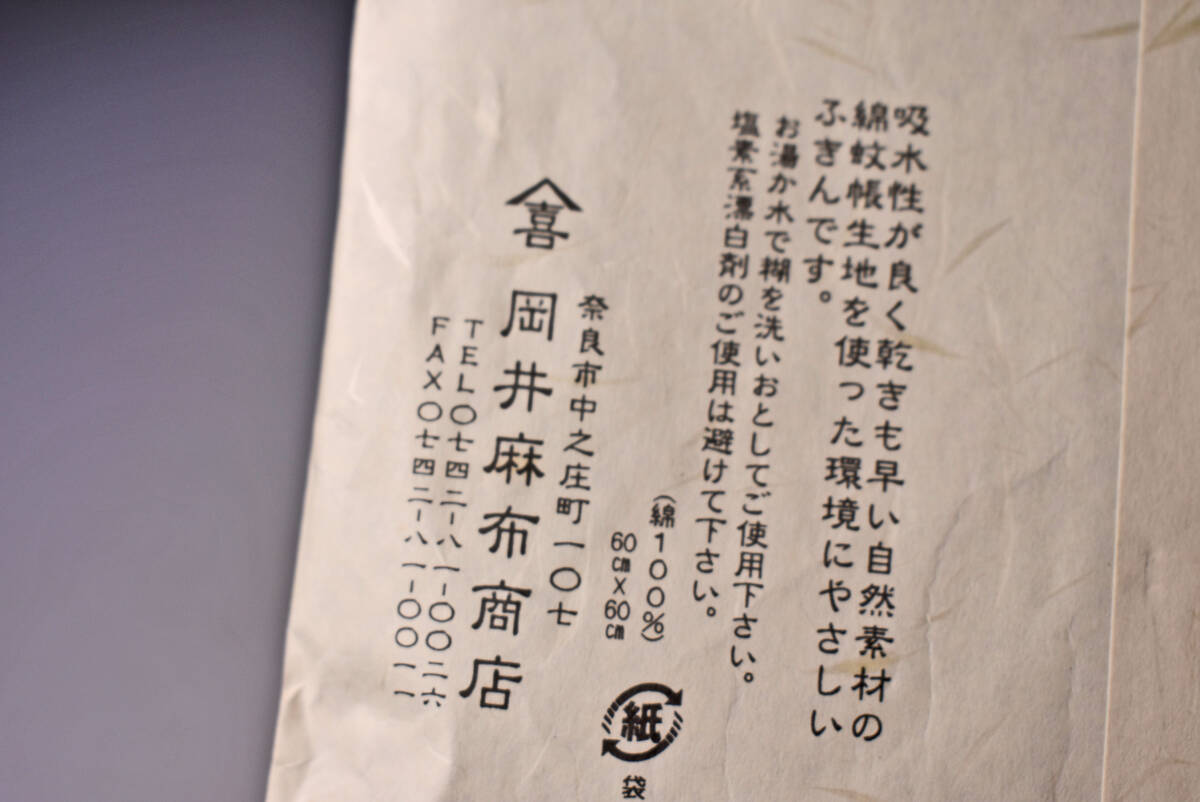 吸水性が良く乾きも早い自然素材の
綿蚊帳生地を使った環境にやさしい
ふきんです。
お湯か水で糊を洗いおとしてご使用下さい。
塩素系漂白剤のご使用は避けて下さい。
(綿100%)
60cm×60cm
紙
袋
奈良市中之庄町一〇七
喜 岡井麻布商店
TEL〇七四二-八一-〇〇二六
FAX〇七四二-八一-〇〇一一